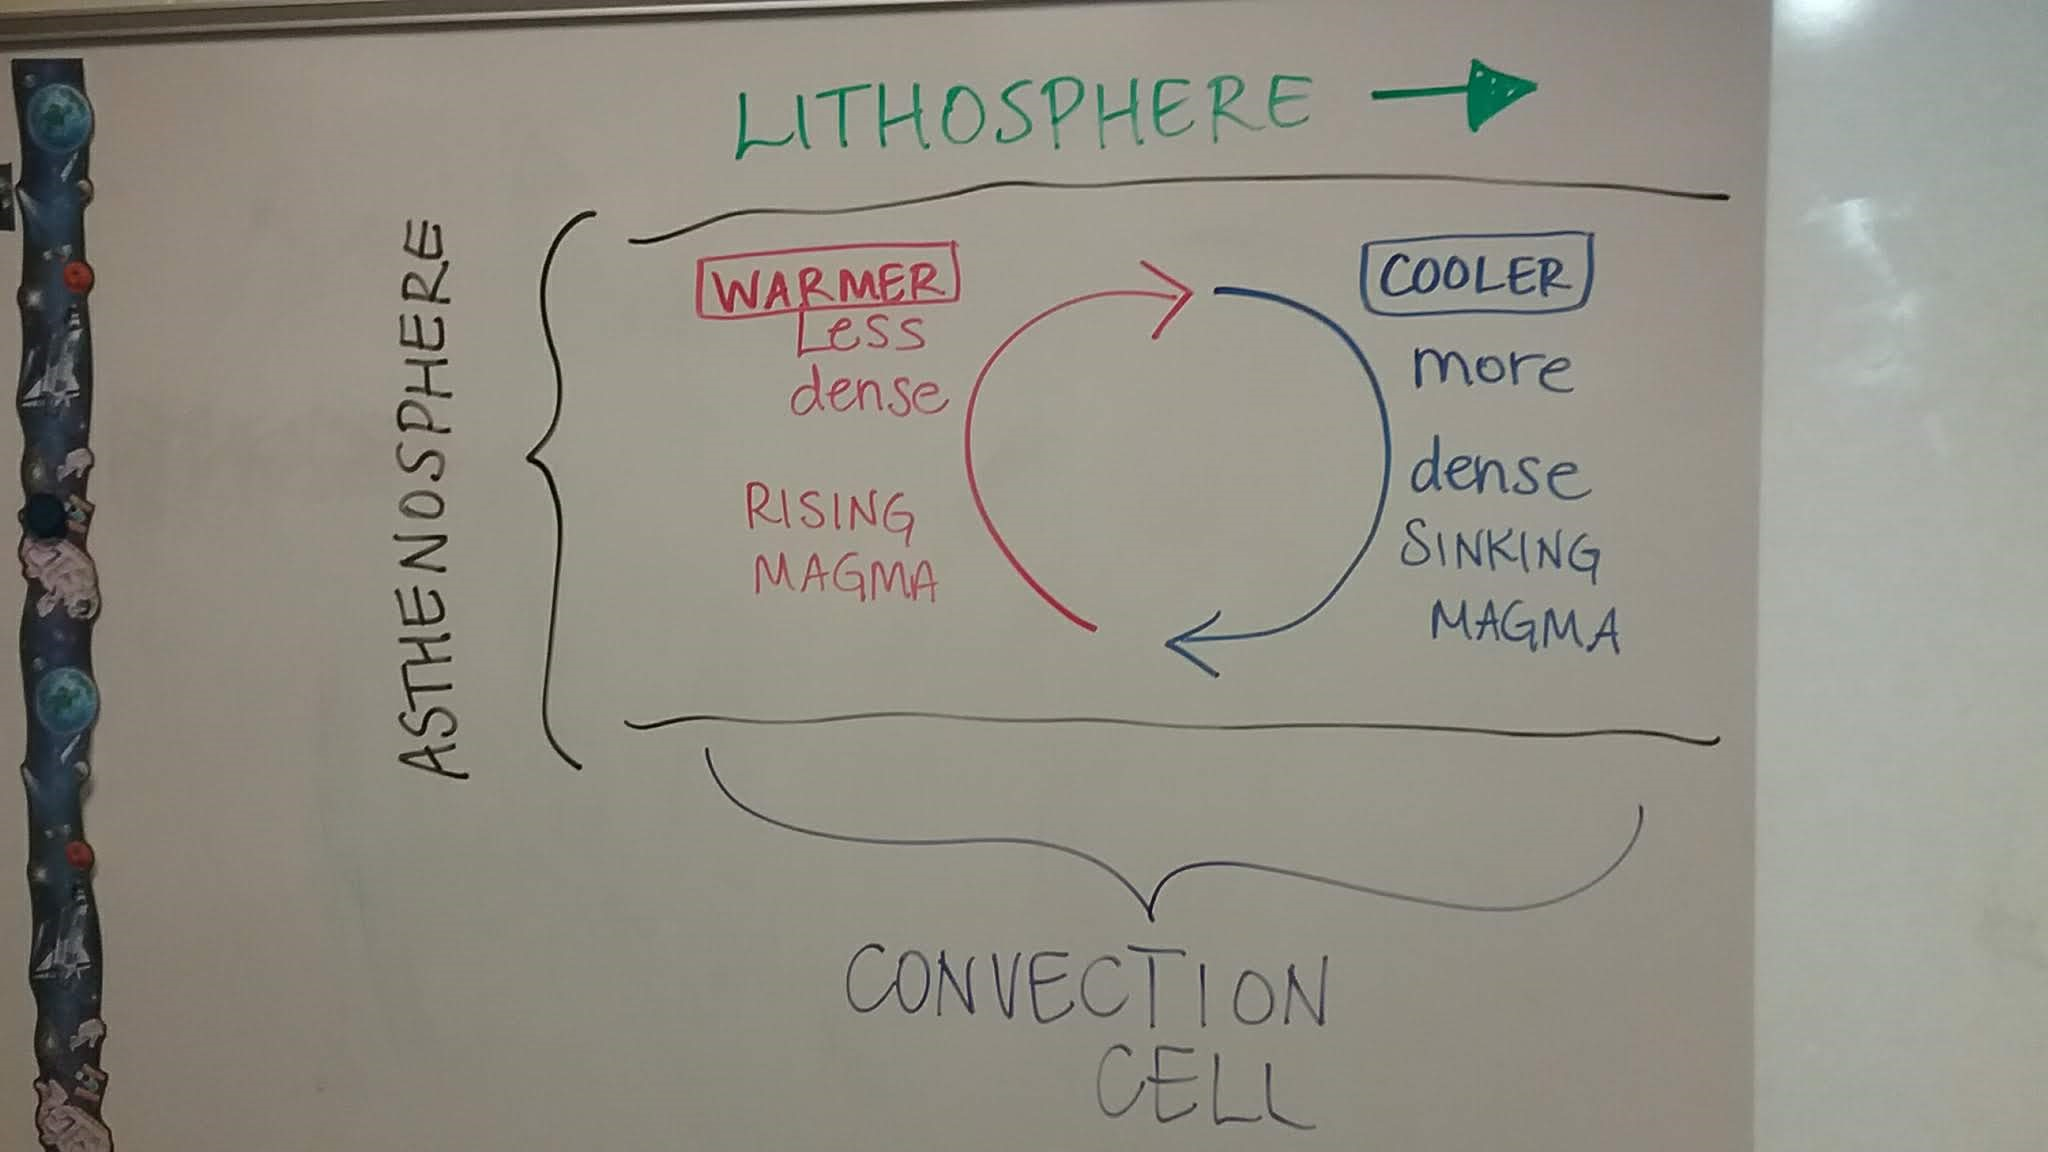 LITHOSPHERE
ASTHENOSPHERE
WARMER
Less
dense
RISING
MAGMA
COOLER
more
dense
SINKING
MAGMA
CONVECTION
CELL